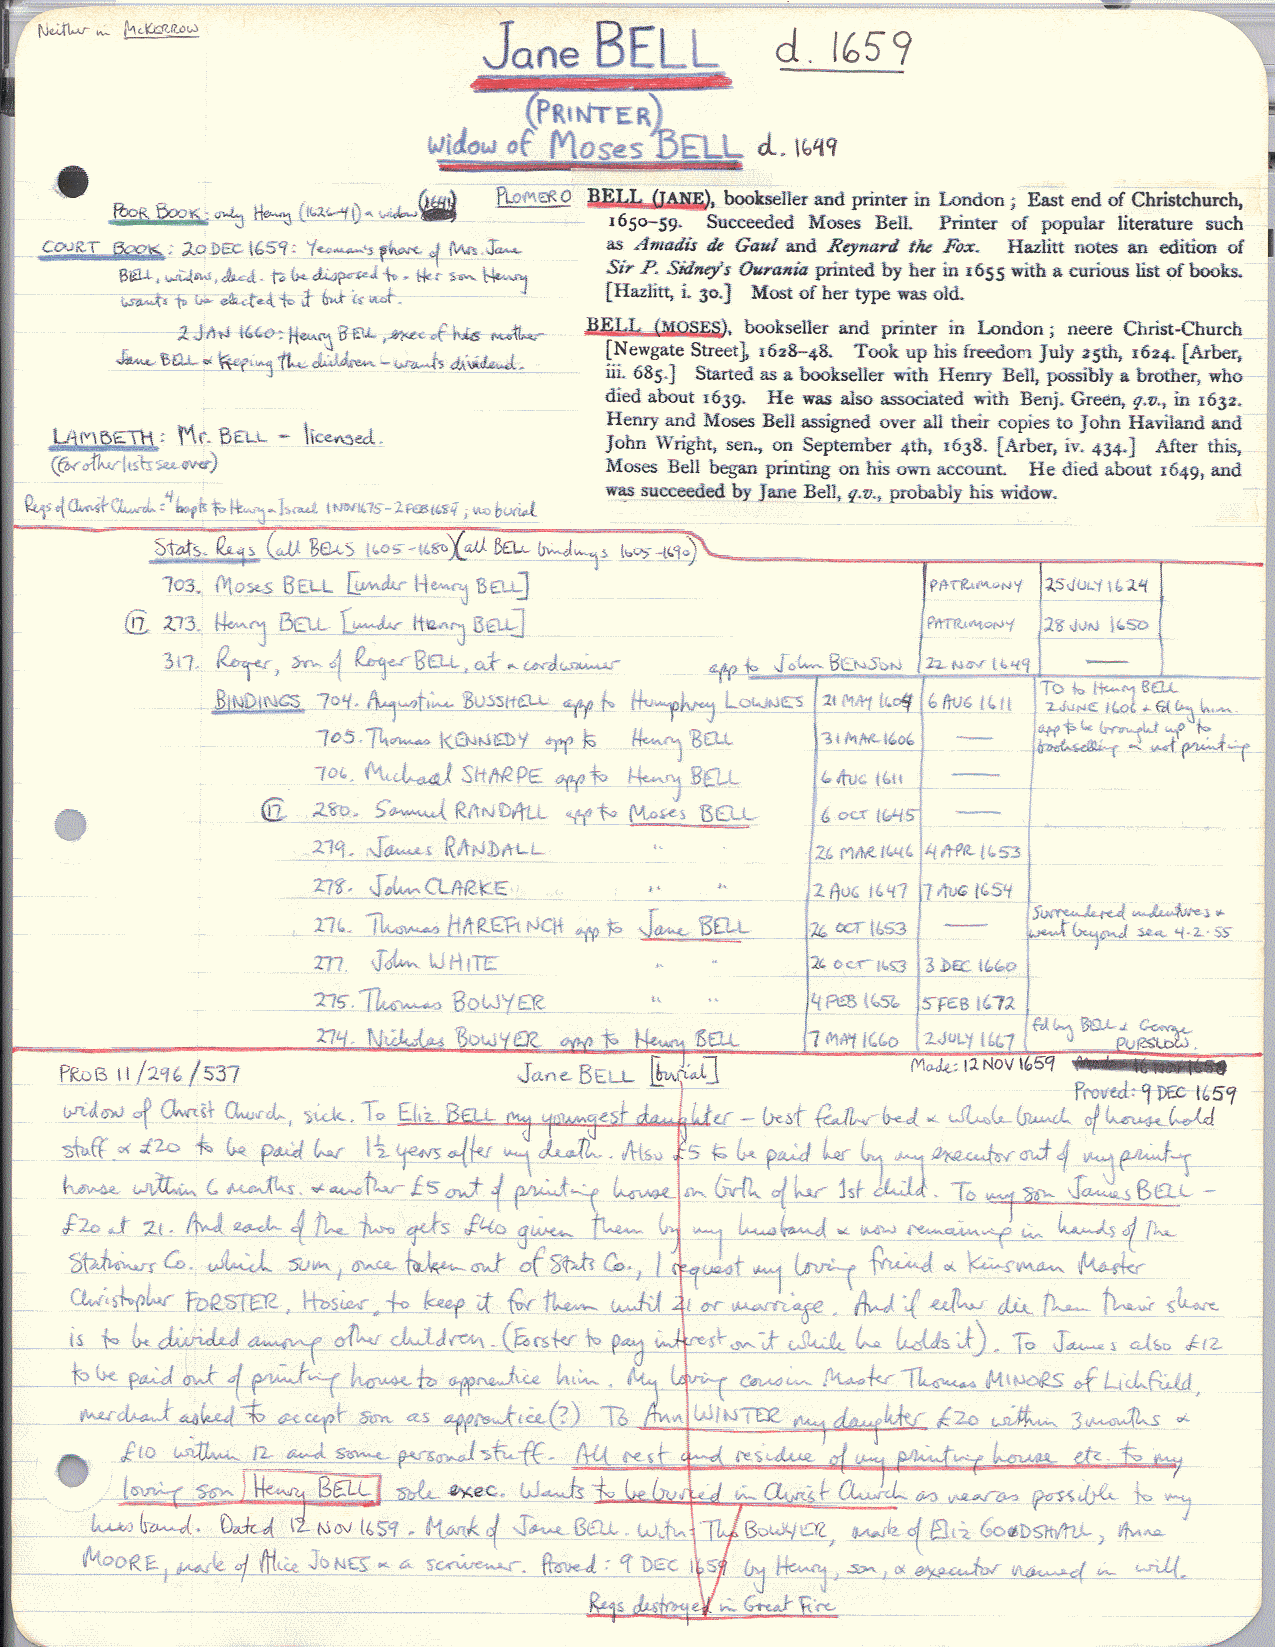 Neither in McKERROW
Jane BELL d. 1659
(PRINTER)
widow of Moses BELL d. 1649
POOR BOOK: only Henry (1626-41) & widow (1641)
COURT BOOK: 20 DEC 1659: Yeoman's share of Mrs. Jane
BELL, widow, decd. to be disposed to - Her son Henry
wants to be elected to it but is not.
2 JAN 1660: Henry BELL, exec of his mother
Jane BELL & keeping the children - wants dividend.
LAMBETH: Mr. BELL - licensed.
(For other lists see over)
Regs of Christ Church: 4 bapts to Henry & Israel 1 NOV 1675 - 2 FEB 1684; no burial
PLOMER O
BELL (JANE), bookseller and printer in London; East end of Christchurch,
1650–59. Succeeded Moses Bell. Printer of popular literature such
as Amadis de Gaul and Reynard the Fox. Hazlitt notes an edition of
Sir P. Sidney's Ourania printed by her in 1655 with a curious list of books.
[Hazlitt, i. 30.] Most of her type was old.
BELL (MOSES), bookseller and printer in London; neere Christ-Church
[Newgate Street], 1628–48. Took up his freedom July 25th, 1624. [Arber,
iii. 685.] Started as a bookseller with Henry Bell, possibly a brother, who
died about 1639. He was also associated with Benj. Green, q.v., in 1632.
Henry and Moses Bell assigned over all their copies to John Haviland and
John Wright, sen., on September 4th, 1638. [Arber, iv. 434.] After this,
Moses Bell began printing on his own account. He died about 1649, and
was succeeded by Jane Bell, q.v., probably his widow.
Stats. Regs (all BELLS 1605-1680) (all BELL bindings 1605-1690)
703. Moses BELL [under Henry BELL] PATRIMONY 25 JULY 1624
17 273. Henry BELL [under Henry BELL] PATRIMONY 28 JUN 1650
317. Roger, son of Roger BELL, at a cordwainer app to John BENSON 22 NOV 1649 —
BINDINGS 704. Augustine BUSSHELL app to Humphrey LOWNES 21 MAY 1604 6 AUG 1611 TO to Henry BELL
2 JUNE 1606 & Fd by him.
705. Thomas KENNEDY app to Henry BELL 31 MAR 1606 — app to be brought up to
bookselling & not printing
706. Michael SHARPE app to Henry BELL 6 AUG 1611 —
17 280. Samuel RANDALL app to Moses BELL 6 OCT 1645 —
279. James RANDALL " 26 MAR 1646 4 APR 1653
278. John CLARKE " " 2 AUG 1647 7 AUG 1654
276. Thomas HAREFINCH app to Jane BELL 26 OCT 1653 — Surrendered indentures &
went beyond sea 4.2.55
277. John WHITE " " 26 OCT 1653 3 DEC 1660
275. Thomas BOWYER " " 4 FEB 1656 5 FEB 1672
274. Nicholas BOWYER app to Henry BELL 7 MAY 1660 2 JULY 1667 Fd by BELL & George
PURSLOW.
PROB 11/296/537 Jane BELL [burial] Made: 12 NOV 1659
Proved: 9 DEC 1659
widow of Christ Church, sick. To Eliz BELL my youngest daughter - best feather bed & whole bunch of household
stuff & £20 to be paid her 1½ years after my death. Also £5 to be paid her by my executor out of my printing
house within 6 months. & another £5 out of printing house on birth of her 1st child. To my son James BELL -
£20 at 21. And each of the two gets £40 given them by my husband & now remaining in hands of the
Stationers Co. which sum, once taken out of Stats Co., I request my loving friend & kinsman Master
Christopher FORSTER, Hosier, to keep it for them until 21 or marriage. And if either die then their share
is to be divided among other children. (Forster to pay interest on it while he holds it). To James also £12
to be paid out of printing house to apprentice him. My loving cousin Master Thomas MINORS of Lichfield,
merchant asked to accept son as apprentice(?) To Ann WINTER my daughter £20 within 3 months &
£10 within 12 and some personal stuff. All rest and residue of my printing house etc. to my
loving son Henry BELL sole exec. Wants to be buried in Christ Church as near as possible to my
husband. Dated 12 NOV 1659. Mark of Jane BELL. Witn: Tho BOWYER, mark of Eliz GOODSHALL, Anne
MOORE, mark of Alice JONES & a scrivener. Proved: 9 DEC 1659 by Henry, son, & executor named in will.
Regs destroyed in Great Fire